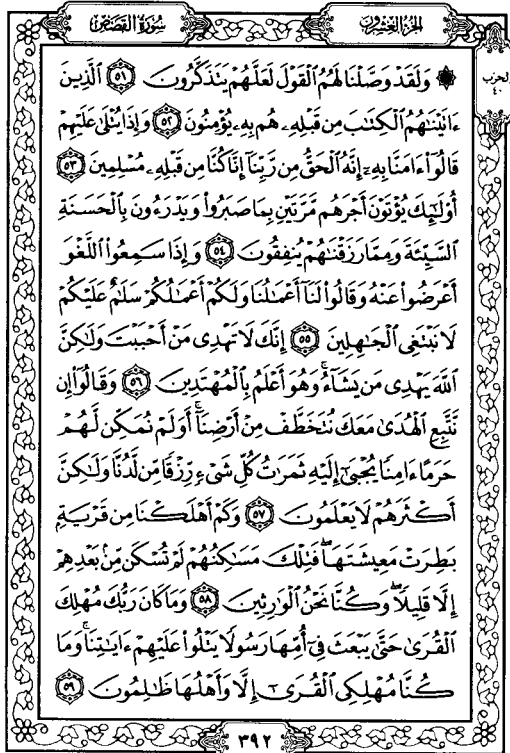 الجزء العشرون
سورة القصص
الحزب
٤٠
۞ وَلَقَدْ وَصَّلْنَا لَهُمُ ٱلْقَوْلَ لَعَلَّهُمْ يَتَذَكَّرُونَ ٥١ ٱلَّذِينَ
ءَاتَيْنَٰهُمُ ٱلْكِتَٰبَ مِن قَبْلِهِۦ هُم بِهِۦ يُؤْمِنُونَ ٥٢ وَإِذَا يُتْلَىٰ عَلَيْهِمْ
قَالُوٓا۟ ءَامَنَّا بِهِۦٓ إِنَّهُ ٱلْحَقُّ مِن رَّبِّنَآ إِنَّا كُنَّا مِن قَبْلِهِۦ مُسْلِمِينَ ٥٣
أُو۟لَٰٓئِكَ يُؤْتَوْنَ أَجْرَهُم مَّرَّتَيْنِ بِمَا صَبَرُوا۟ وَيَدْرَءُونَ بِٱلْحَسَنَةِ
ٱلسَّيِّئَةَ وَمِمَّا رَزَقْنَٰهُمْ يُنفِقُونَ ٥٤ وَإِذَا سَمِعُوا۟ ٱللَّغْوَ
أَعْرَضُوا۟ عَنْهُ وَقَالُوا۟ لَنَآ أَعْمَٰلُنَا وَلَكُمْ أَعْمَٰلُكُمْ سَلَٰمٌ عَلَيْكُمْ
لَا نَبْتَغِى ٱلْجَٰهِلِينَ ٥٥ إِنَّكَ لَا تَهْدِى مَنْ أَحْبَبْتَ وَلَٰكِنَّ
ٱللَّهَ يَهْدِى مَن يَشَآءُ ۚ وَهُوَ أَعْلَمُ بِٱلْمُهْتَدِينَ ٥٦ وَقَالُوٓا۟ إِن
نَّتَّبِعِ ٱلْهُدَىٰ مَعَكَ نُتَخَطَّفْ مِنْ أَرْضِنَآ ۚ أَوَلَمْ نُمَكِّن لَّهُمْ
حَرَمًا ءَامِنًا يُجْبَىٰٓ إِلَيْهِ ثَمَرَٰتُ كُلِّ شَىْءٍ رِّزْقًا مِّن لَّدُنَّا وَلَٰكِنَّ
أَكْثَرَهُمْ لَا يَعْلَمُونَ ٥٧ وَكَمْ أَهْلَكْنَا مِن قَرْيَةٍۭ
بَطِرَتْ مَعِيشَتَهَا ۖ فَتِلْكَ مَسَٰكِنُهُمْ لَمْ تُسْكَن مِّنۢ بَعْدِهِمْ
إِلَّا قَلِيلًا ۖ وَكُنَّا نَحْنُ ٱلْوَٰرِثِينَ ٥٨ وَمَا كَانَ رَبُّكَ مُهْلِكَ
ٱلْقُرَىٰ حَتَّىٰ يَبْعَثَ فِىٓ أُمِّهَا رَسُولًا يَتْلُوا۟ عَلَيْهِمْ ءَايَٰتِنَا ۚ وَمَا
كُنَّا مُهْلِكِى ٱلْقُرَىٰٓ إِلَّا وَأَهْلُهَا ظَٰلِمُونَ ٥٩
٣٩٢